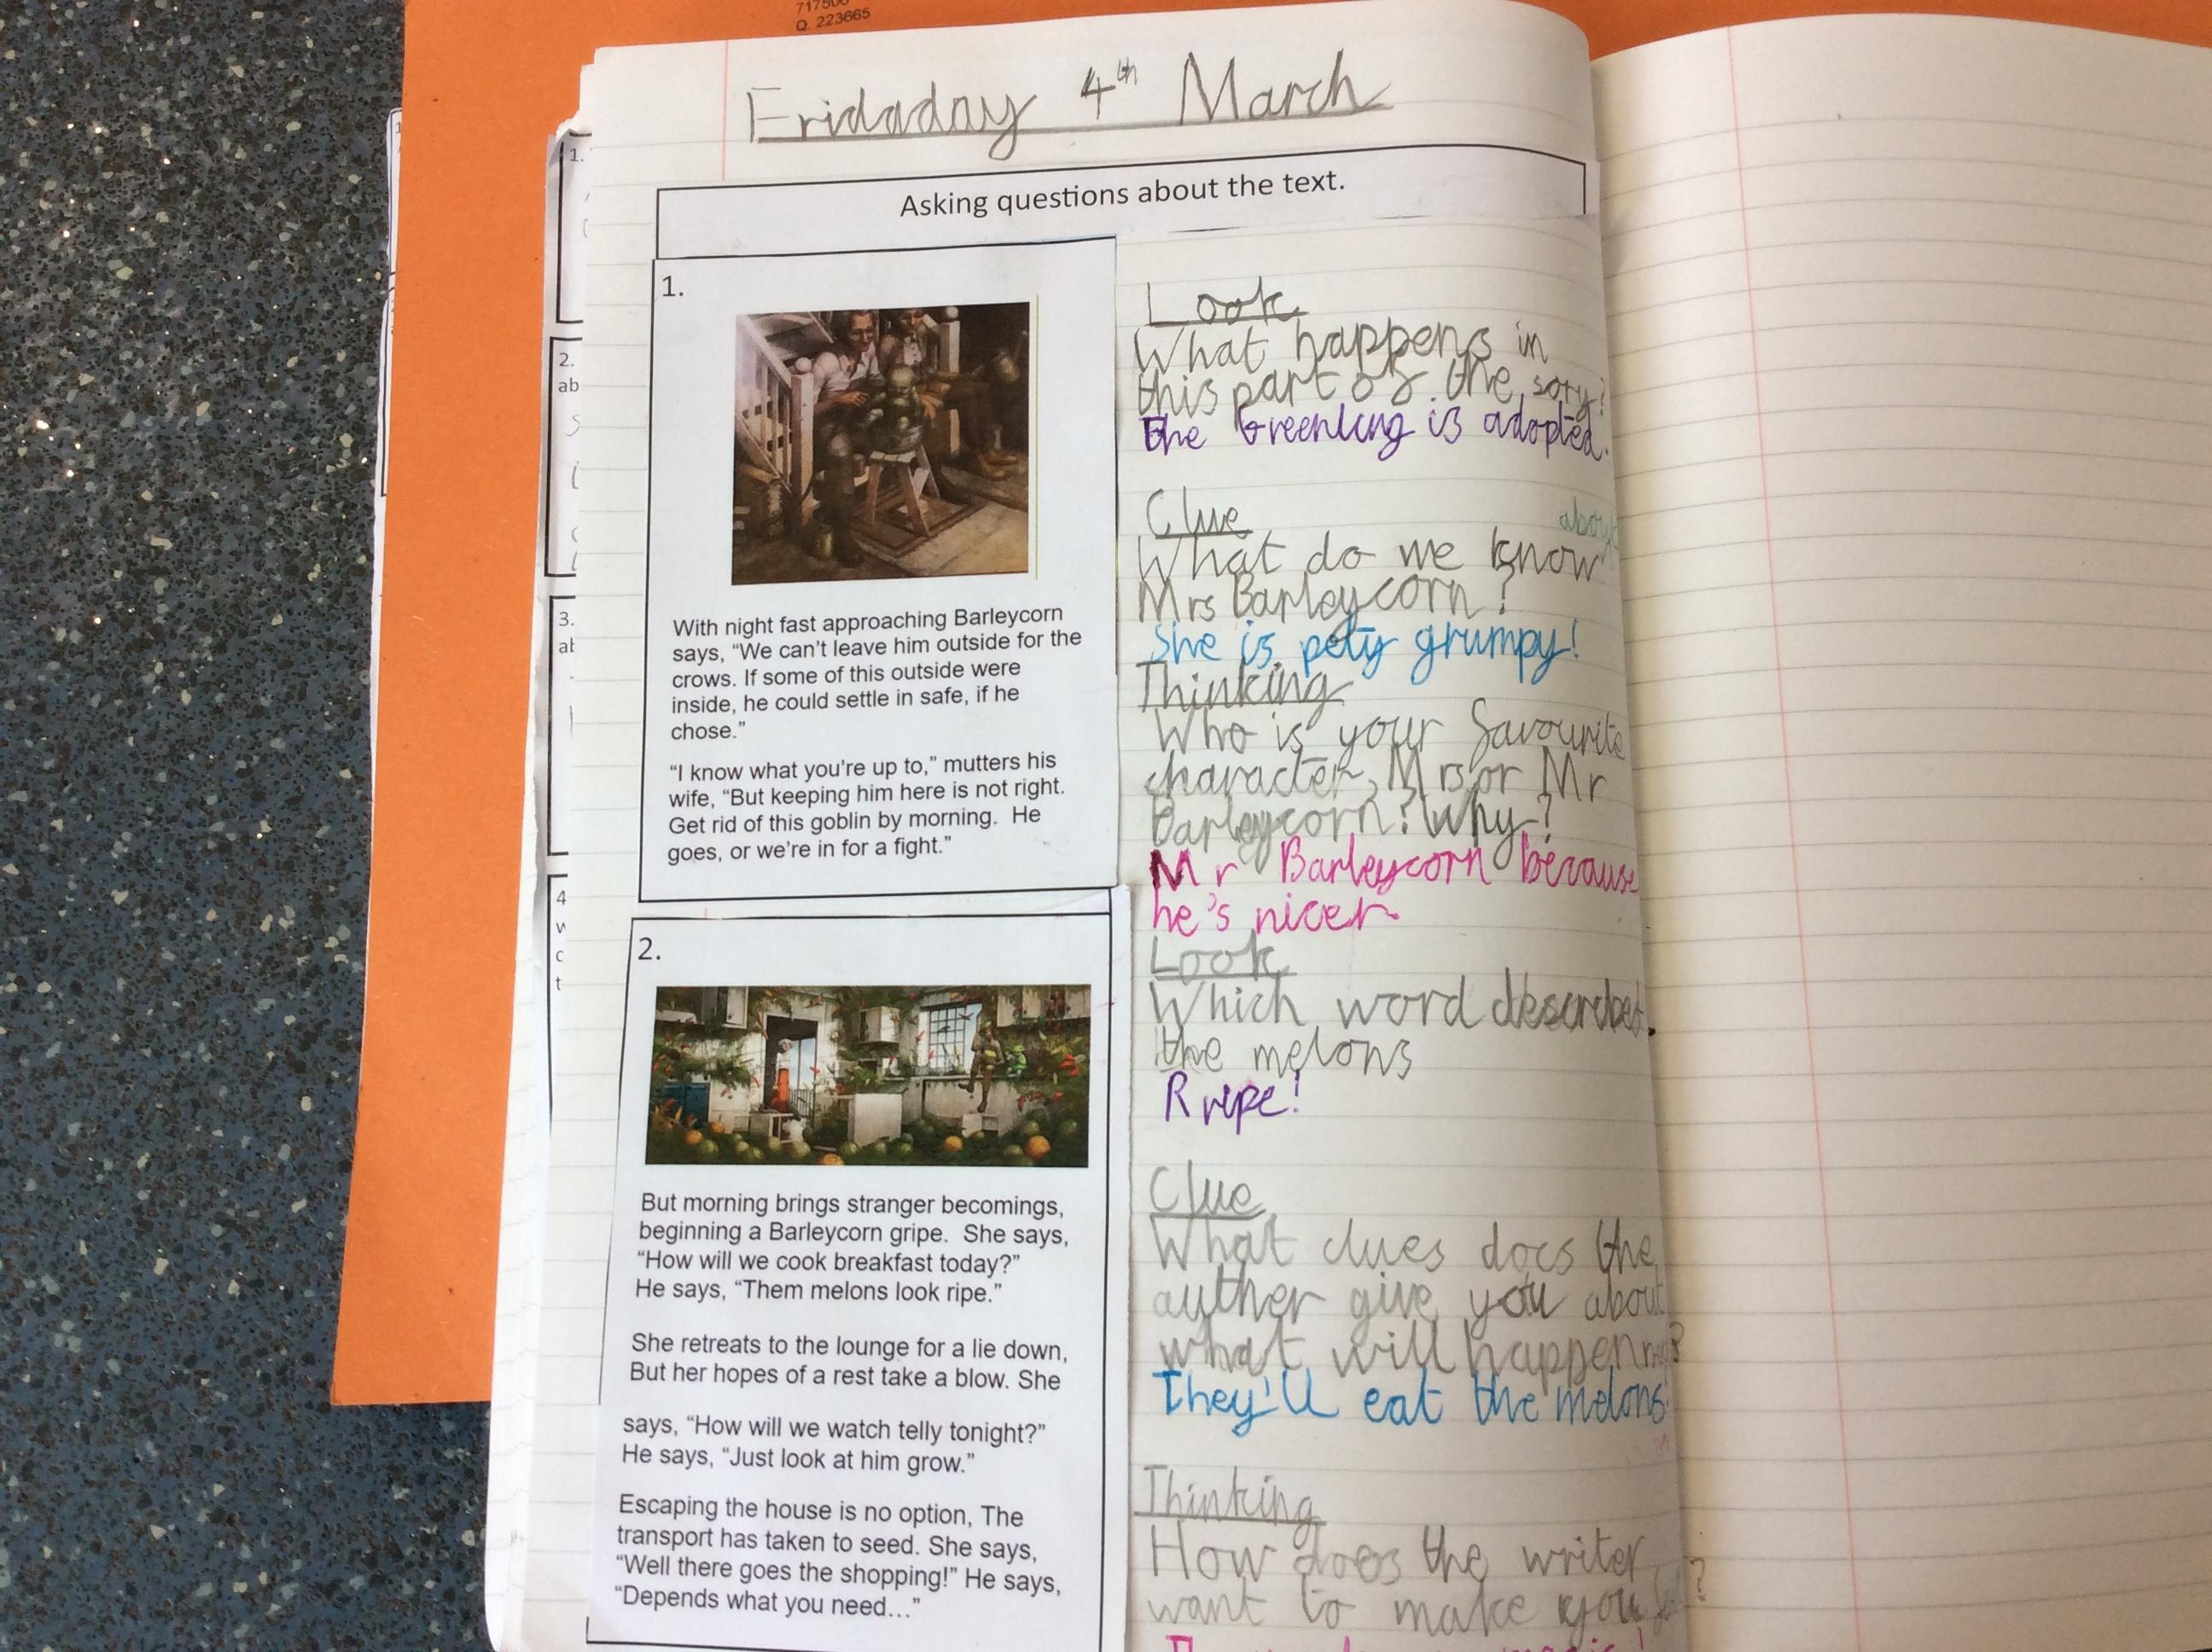 717500
Q 223665
Fridaday 4th March
Asking questions about the text.
1.
With night fast approaching Barleycorn
says, “We can’t leave him outside for the
crows. If some of this outside were
inside, he could settle in safe, if he
chose.”
“I know what you’re up to,” mutters his
wife, “But keeping him here is not right.
Get rid of this goblin by morning.  He
goes, or we’re in for a fight.”
Look
What happens in
this part of the sory?
The Greenling is adopted.
Clue
about
What do we know
Mrs Barleycorn?
She is pety grumpy!
Thinking
Who is your favourite
character, Mrs or Mr
Barleycorn? Why?
Mr Barleycorn because
he's nicer.
2.
But morning brings stranger becomings,
beginning a Barleycorn gripe.  She says,
“How will we cook breakfast today?”
He says, “Them melons look ripe.”
She retreats to the lounge for a lie down,
But her hopes of a rest take a blow. She
says, “How will we watch telly tonight?”
He says, “Just look at him grow.”
Escaping the house is no option, The
transport has taken to seed. She says,
“Well there goes the shopping!” He says,
“Depends what you need…”
Look
Which word describes
the melons
Rripe!
Clue
What clues does the
auther give you about
what will happen
They'll eat the melons
Thinking
How does the writer
want to make you
1.
2.
ab
3.
4
w
c
t